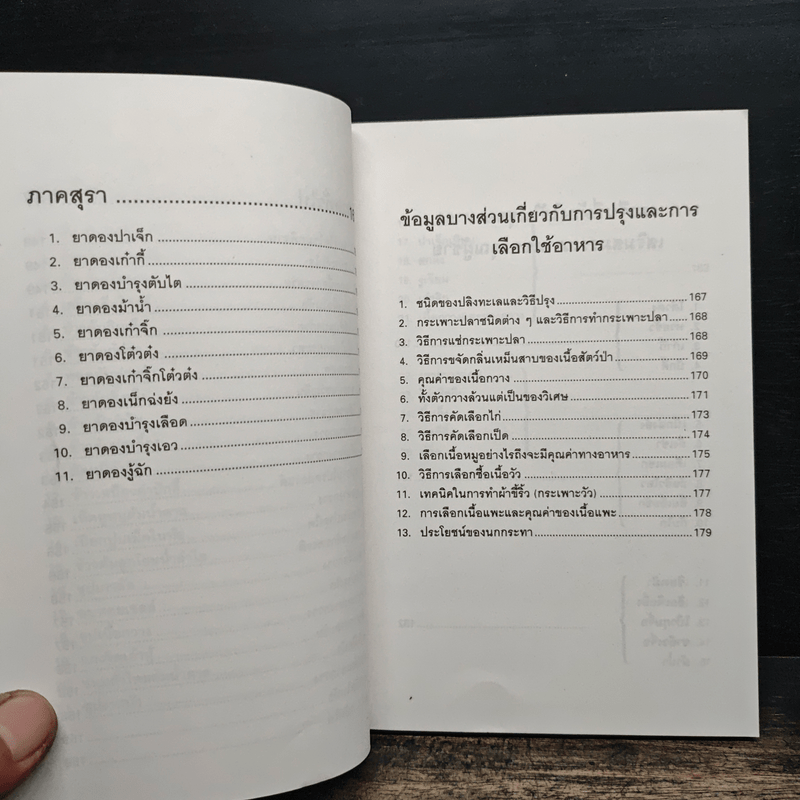 ภาคสุรา
1. ยาดองปาเจ็ก
2. ยาดองเก๋ากี้
3. ยาดองบำรุงตับไต
4. ยาดองม้าน้ำ
5. ยาดองเก๋าจิ๊ก
6. ยาดองโต๋วต๋ง
7. ยาดองเก๋าจิ๊กโต๋วต๋ง
8. ยาดองเน็กฉ่งยัง
9. ยาดองบำรุงเลือด
10. ยาดองบำรุงเอว
11. ยาดองงู้ฉัก
ข้อมูลบางส่วนเกี่ยวกับการปรุงและการ
เลือกใช้อาหาร
1. ชนิดของปลิงทะเลและวิธีปรุง 167
2. กระเพาะปลาชนิดต่าง ๆ และวิธีการทำกระเพาะปลา 168
3. วิธีการแช่กระเพาะปลา 168
4. วิธีการขจัดกลิ่นเหม็นสาบของเนื้อสัตว์ป่า 169
5. คุณค่าของเนื้อกวาง 170
6. ทั้งตัวกวางล้วนแต่เป็นของวิเศษ 171
7. วิธีการคัดเลือกไก่ 173
8. วิธีการคัดเลือกเป็ด 174
9. เลือกเนื้อหมูอย่างไรถึงจะมีคุณค่าทางอาหาร 175
10. วิธีการเลือกซื้อเนื้อวัว 177
11. เทคนิคในการทำผ้าขี้ริ้ว (กระเพาะวัว) 177
12. การเลือกเนื้อแพะและคุณค่าของเนื้อแพะ 178
13. ประโยชน์ของนกกระทา 179